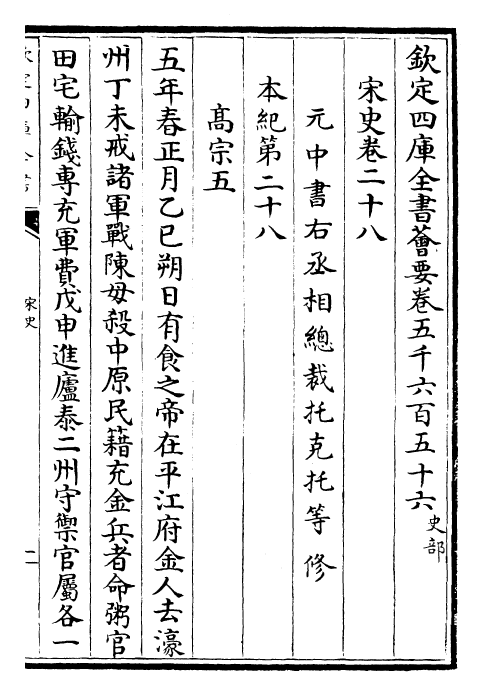 欽定四庫全書薈要卷五千六百五十六
史部
宋史卷二十八
元中書右丞相總裁托克托等修
本紀第二十八
髙宗五
五年春正月乙巳朔日有食之帝在平江府金人去濠
州丁未戒諸軍戰陳毋殺中原民籍充金兵者命粥官
田宅輸錢專充軍費戊申進廬泰二州守禦官屬各一
宋史